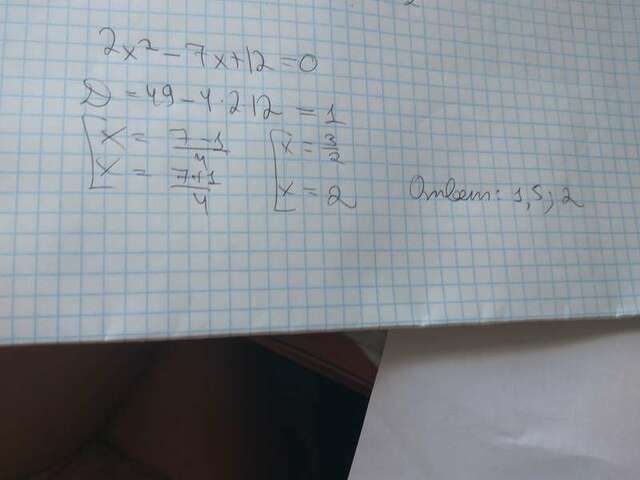 2x² - 7x + 12 = 0
D = 49 - 4·2·12 = 1
[ x = (7-1)/4 [ x = 3/2
[ x = (7+1)/4 [ x = 2 Ответ: 1,5; 2